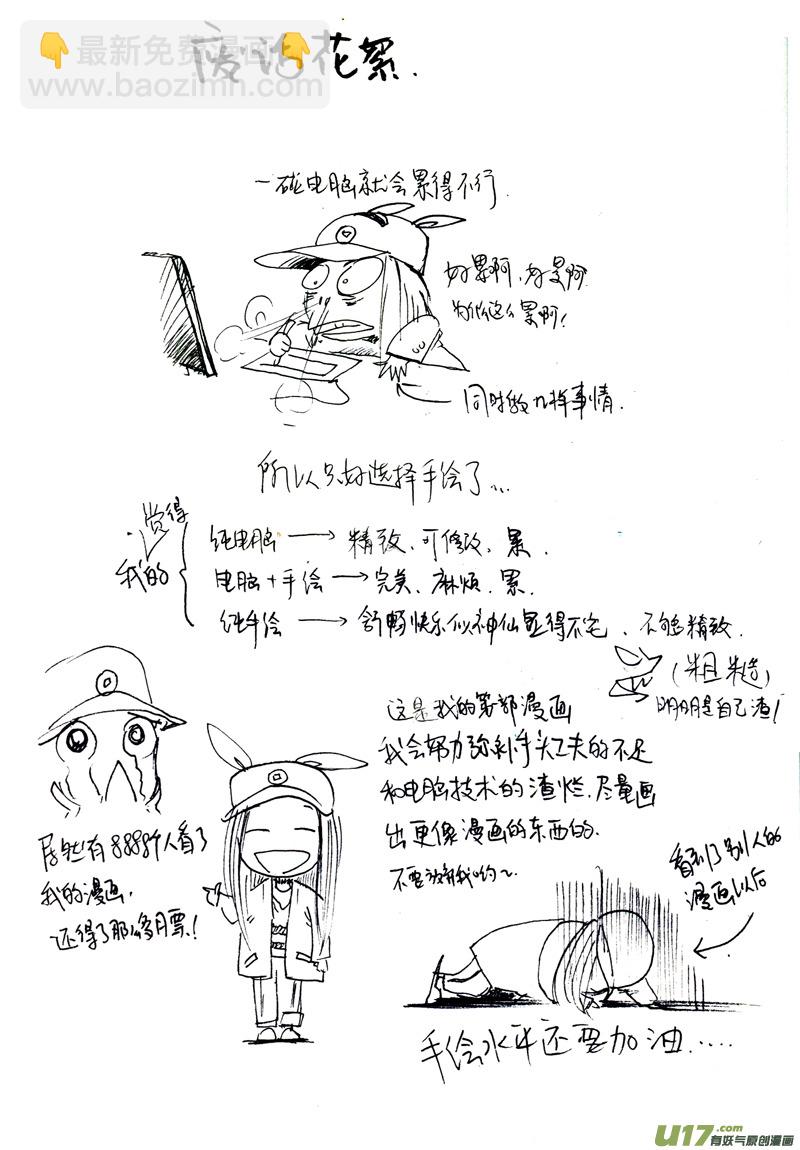 👇最新免费漫画👇
www.baozimh.com
废话花絮.
一碰电脑就会累得不行.
好累啊、好晕啊.
为什么这么累啊!
同时做九样事情.
所以只好选择手绘了...
我的觉得
纯电脑 → 精致、可修改、累.
电脑+手绘 → 完美、麻烦、累.
纯手绘 → 舒畅快乐似神仙显得不宅、不够精致.
(粗糙)
明明是自己渣!
这是我的第一部漫画
我会努力弥补手头工夫的不足
和电脑技术的渣烂.尽量画
出更像漫画的东西的.
不要放弃我哟~
居然有8888个人看了
我的漫画,
还得了那么多月票!
看到了别人的
漫画以后
手绘水平还要加油.....
U17.com
有妖气原创漫画